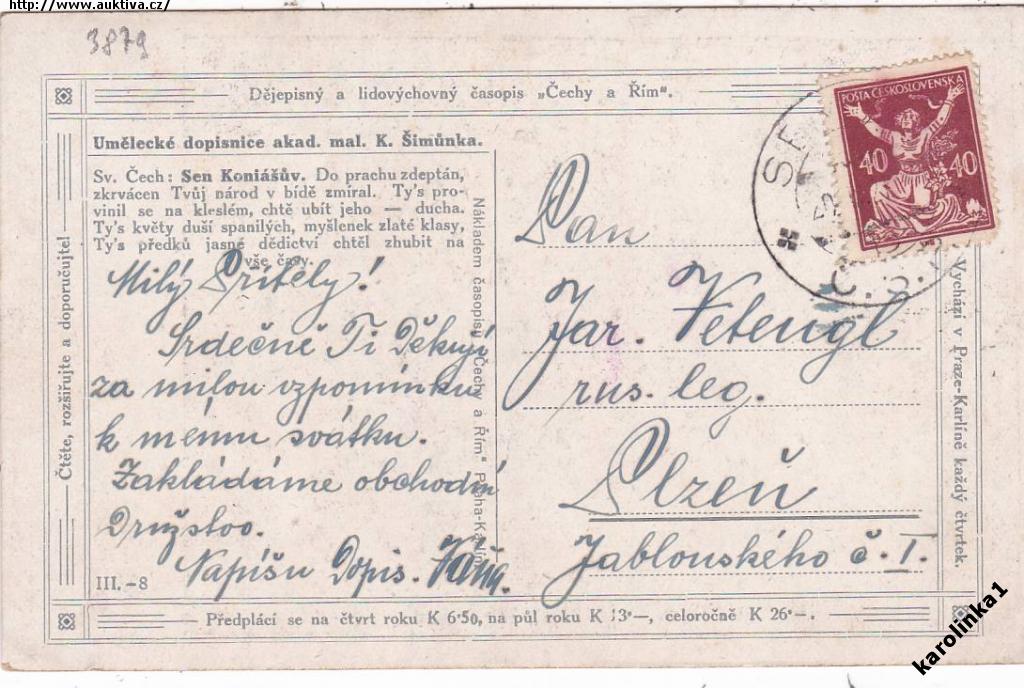 http://www.auktiva.cz/
3879
Dějepisný a lidovýchovný časopis „Čechy a Řím“.
Umělecké dopisnice akad. mal. K. Šimůnka.
Sv. Čech: Sen Koniášův. Do prachu zdeptán,
zkrvácen Tvůj národ v bídě zmíral. Ty's pro-
vinil se na kleslém, chtě ubít jeho — ducha.
Ty's květy duší spanilých, myšlenek zlaté klasy,
Ty's předků jasné dědictví chtěl zhubit na
vše časy.
Milý Příteli!
Srdečně Ti Děkuji
za milou vzpomínku
k memu svátku.
Zakládáme obchodní
Družstvo.
Napíšu Dopis. Váňa.
III.-8
Čtěte, rozšiřujte a doporučujte!
Nákladem časopisu „Čechy a Řím“ Praha-Karlín.
POŠTA ČESKOSLOVENSKÁ
40 40
Č.S.
Pan
Jar. Vetengl
rus. leg.
Plzeň
Jablonského č. I.
Vychází v Praze-Karlíně každý čtvrtek.
Předplácí se na čtvrt roku K 6·50, na půl roku K 13·—, celoročně K 26·—.
karolinka1